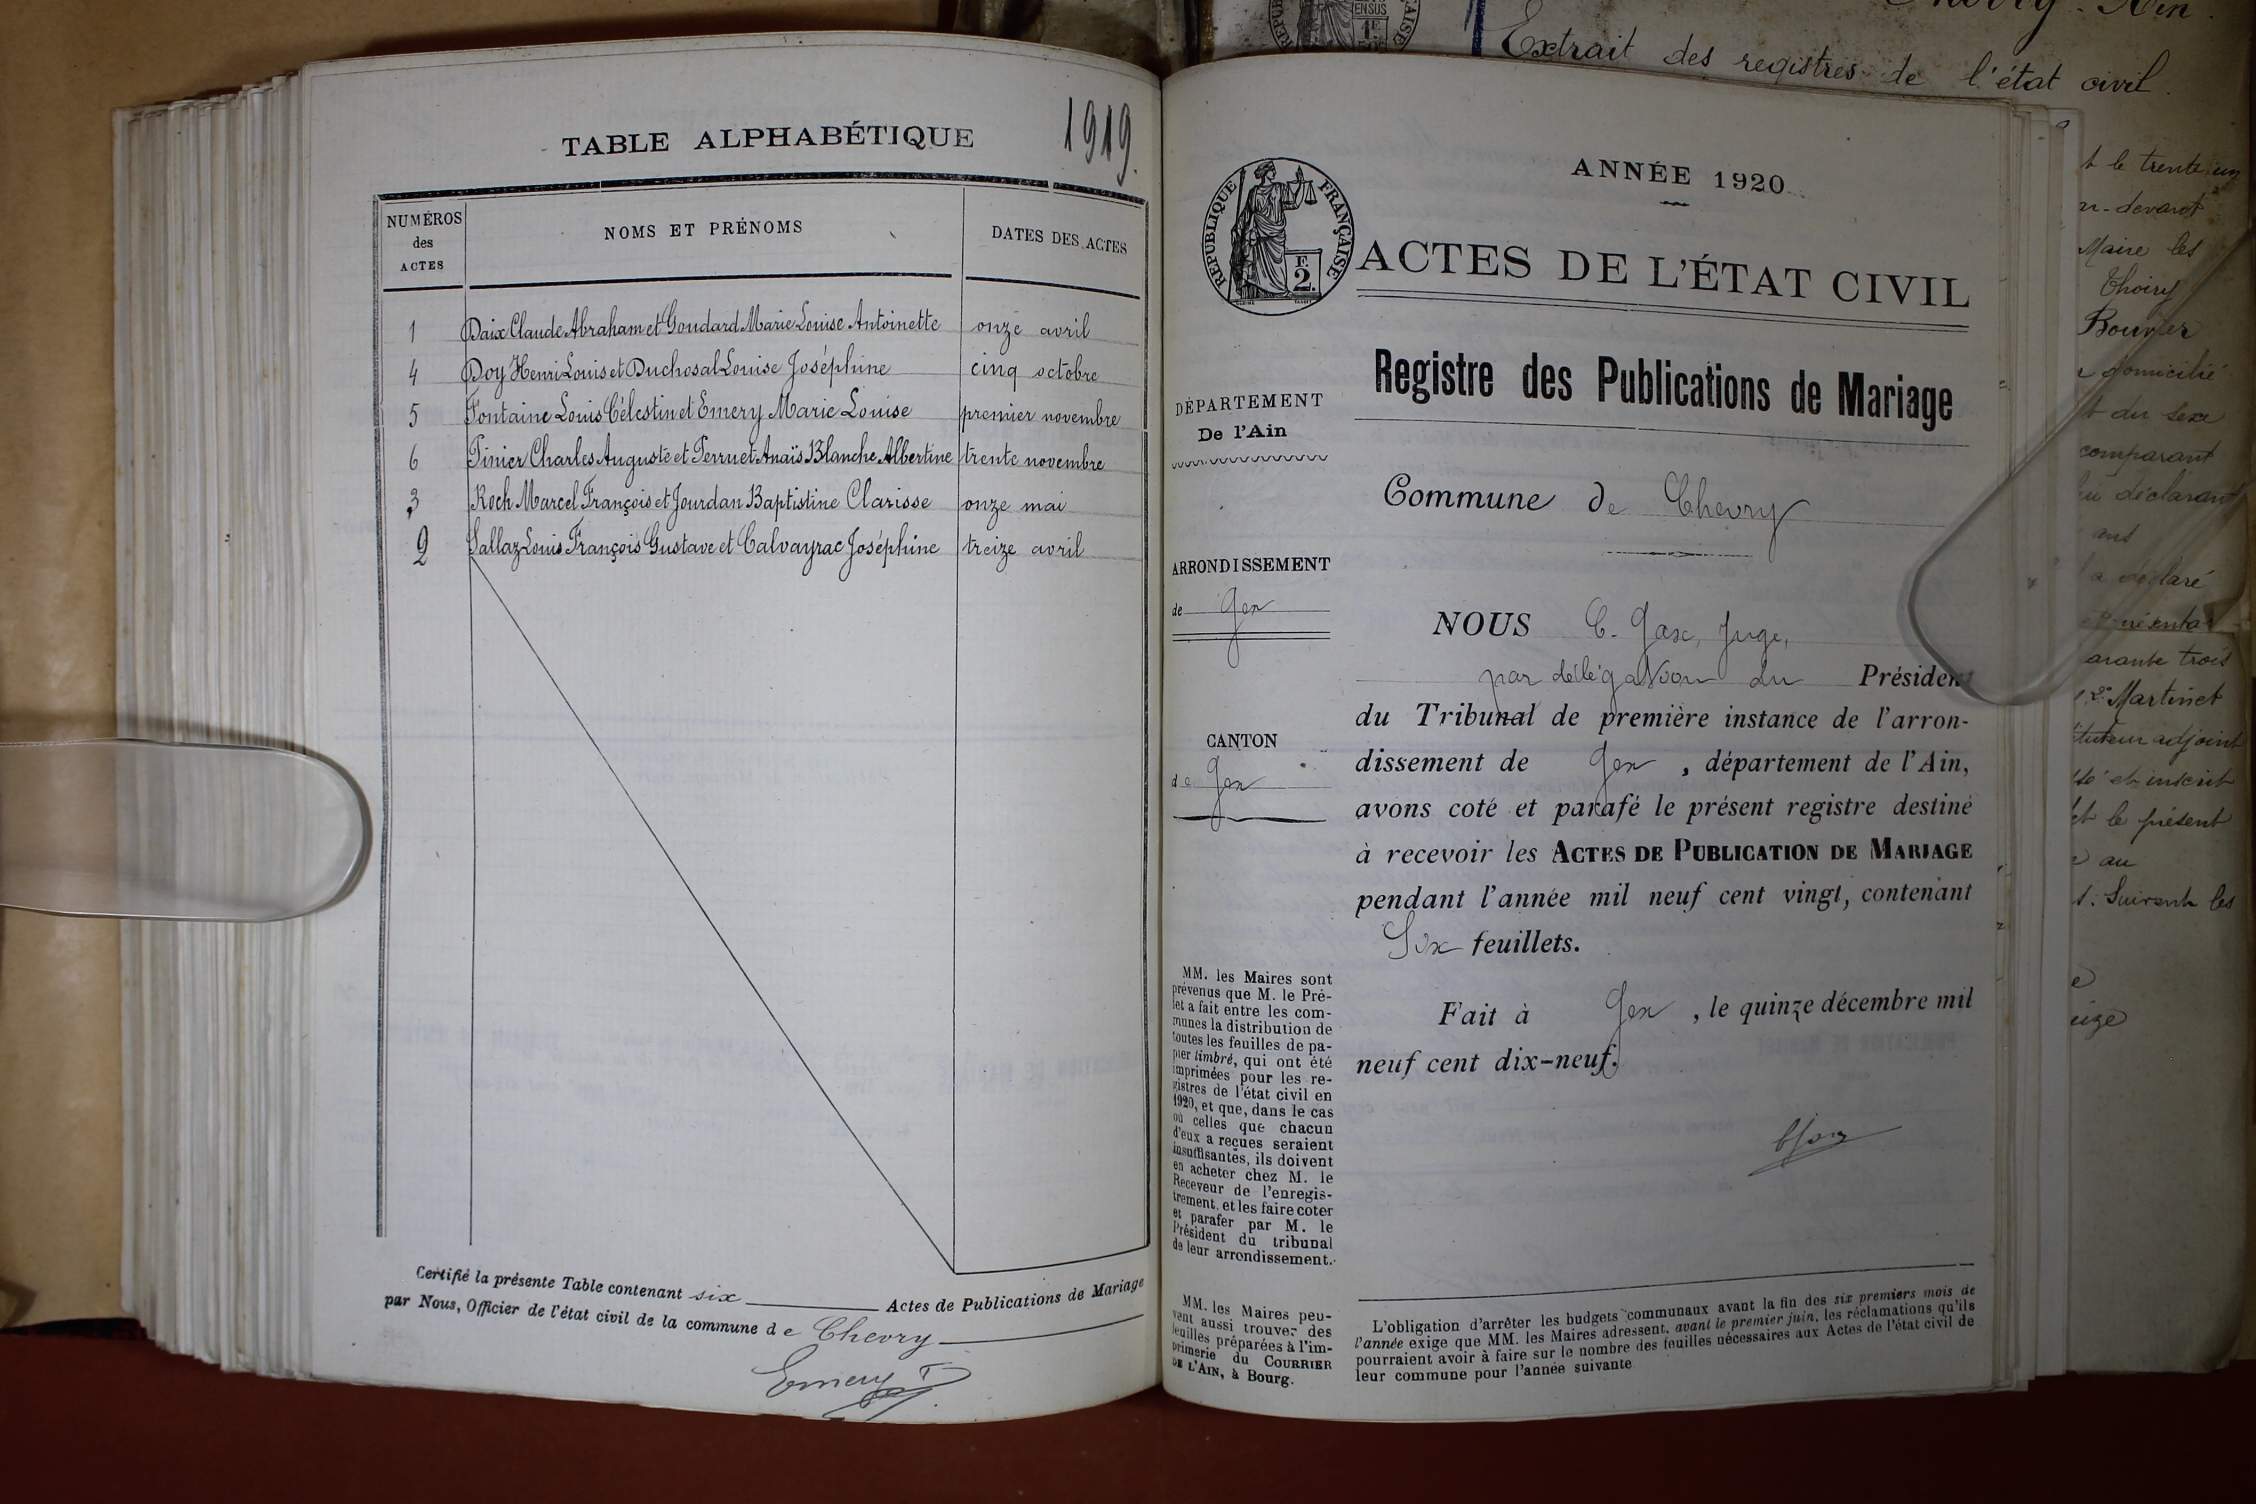 TABLE ALPHABÉTIQUE
1919.
NUMÉROS des ACTES
NOMS ET PRÉNOMS
DATES DES ACTES
1 Daix Claude Abraham et Goudard Marie Louise Antoinette onze avril
4 Doy Henri Louis et Duchosal Louise Joséphine cinq octobre
5 Fontaine Louis Célestin et Emery Marie Louise premier novembre
6 Pinier Charles Auguste et Perruet Anaïs Blanche Albertine trente novembre
3 Roch Marcel François et Jourdan Baptistine Clarisse onze mai
2 Sallaz Louis François Gustave et Calvayrac Joséphine treize avril
Certifié la présente Table contenant six Actes de Publications de Mariage
par Nous, Officier de l'état civil de la commune de Chevry
Emery
ANNÉE 1920
RÉPUBLIQUE FRANÇAISE
F.
2.
ACTES DE L'ÉTAT CIVIL
Registre des Publications de Mariage
DÉPARTEMENT
De l'Ain
Commune de Chevry
ARRONDISSEMENT
de Gex
CANTON
de Gex
NOUS C. Gax, Juge,
par délégation du Président
du Tribunal de première instance de l'arron-
dissement de Gex, département de l'Ain,
avons coté et parafé le présent registre destiné
à recevoir les ACTES DE PUBLICATION DE MARIAGE
pendant l'année mil neuf cent vingt, contenant
Six feuillets.
Fait à Gex, le quinze décembre mil
neuf cent dix-neuf.
MM. les Maires sont
prévenus que M. le Pré-
fet a fait entre les com-
munes la distribution de
toutes les feuilles de pa-
pier timbré, qui ont été
imprimées pour les re-
gistres de l'état civil en
1920, et que, dans le cas
où celles que chacun
d'eux a reçues seraient
insuffisantes, ils doivent
en acheter chez M. le
Receveur de l'enregis-
trement, et les faire coter
et parafer par M. le
Président du tribunal
de leur arrondissement.
MM. les Maires peu-
vent aussi trouver des
feuilles préparées à l'im-
primerie du COURRIER
DE L'AIN, à Bourg.
L'obligation d'arrêter les budgets communaux avant la fin des six premiers mois de
l'année exige que MM. les Maires adressent, avant le premier juin, les réclamations qu'ils
pourraient avoir à faire sur le nombre des feuilles nécessaires aux Actes de l'état civil de
leur commune pour l'année suivante
Extrait des registres de l'état civil.
le trente un
devant
Maire les
Thoiry
Bouvier
domicilié
du sexe
comparant
déclarant
ans
a déclaré
présenta
trois
Martinet
adjoint
et inscrit
le présent
au
Suivent les